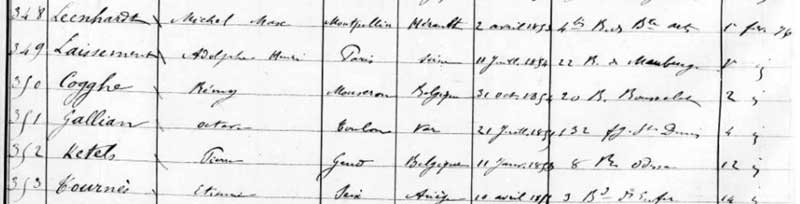 348 Leenhardt Michel Max Montpellier Hérault 2 avril 4 R. d. Bx arts 1 fév 76
349 Laissement Adolphe Henri Paris Seine 11 Juill. 1854 22 R. de Maubeuge
350 Cogghe Rémy Mouscron Belgique 31 oct. 1854 20 R. 2
351 Gallian octave Toulon Var 21 Juill. 132 fg. St Denis 4
352 Ketels Gand Belgique 11 Janv. 8 R. odessa 12
353 Tournès Etienne Seix Ariège 10 avril 3 Bd d'Enfer